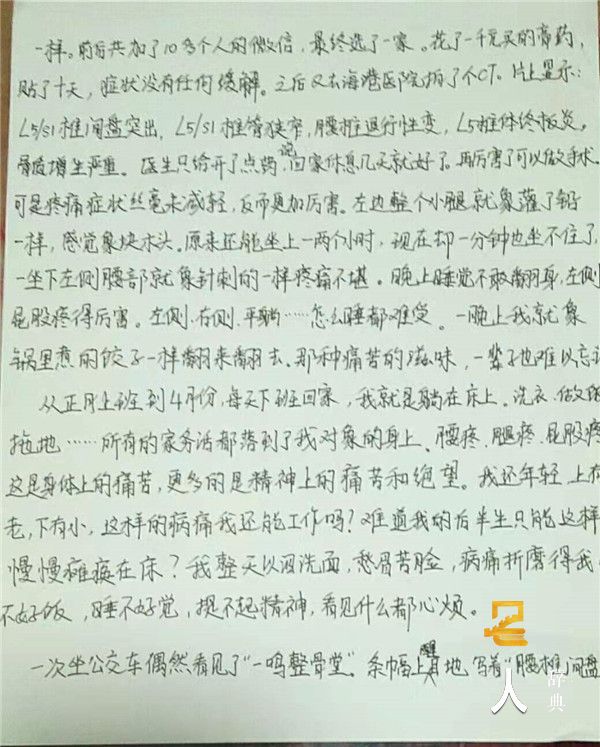 一样。前后共加了10多个人的微信，最终选了一家。花了一千元买的膏药，
贴了十天，症状没有任何缓解。之后又去海港医院拍了个CT。片上显示：
L5/S1椎间盘突出，L5/S1椎管狭窄，腰椎退行性变，L5椎体终板炎。
骨质增生严重。医生只给开了点药，说回家休息几天就好了。再厉害了可以做手术。
可是疼痛症状丝毫未减轻，反而更加厉害。左边整个小腿就象灌了铅
一样，感觉象块木头。原来还能坐上一两个小时，现在却一分钟也坐不住了，
一坐下左侧腰部就象针刺的一样疼痛不堪。晚上睡觉不敢翻身，左侧
屁股疼得厉害。左侧、右侧、平躺……怎么睡都难受。一晚上我就象
锅里煮的饺子一样翻来翻去。那种痛苦的滋味，一辈子也难以忘
从正月上班到4月份，每天下班回家，我就是躺在床上。洗衣、做饭
拖地……所有的家务活都落到了我对象的身上、腰疼、腿疼、屁股疼
这是身体上的痛苦，更多的是精神上的痛苦和绝望。我还年轻，上有
老，下有小，这样的病痛我还能工作吗？难道我的后半生只能这样
慢慢瘫痪在床？我整天以泪洗面，愁眉苦脸，病痛折磨得我
不好饭，睡不好觉，提不起精神，看见什么都心烦。
一次坐公交车偶然看见了“一鸣整骨堂”。条幅上醒目地写着“腰椎间盘
人
辞典